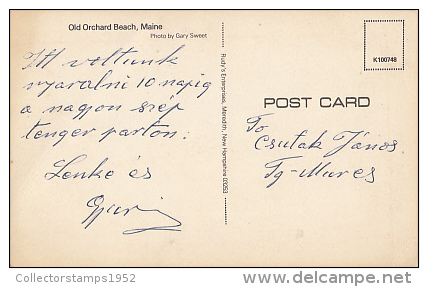 Old Orchard Beach, Maine
Photo by Gary Sweet
Itt voltunk
nyaralni 10 napig
a nagyon szép
tenger parton.
Lenke és
Gyuri
Rudy's Enterprises, Meredith, New Hampshire 03253
K100748
POST CARD
To
Csutak János
Tg-Mures
Collectorstamps1952
delcampe.net